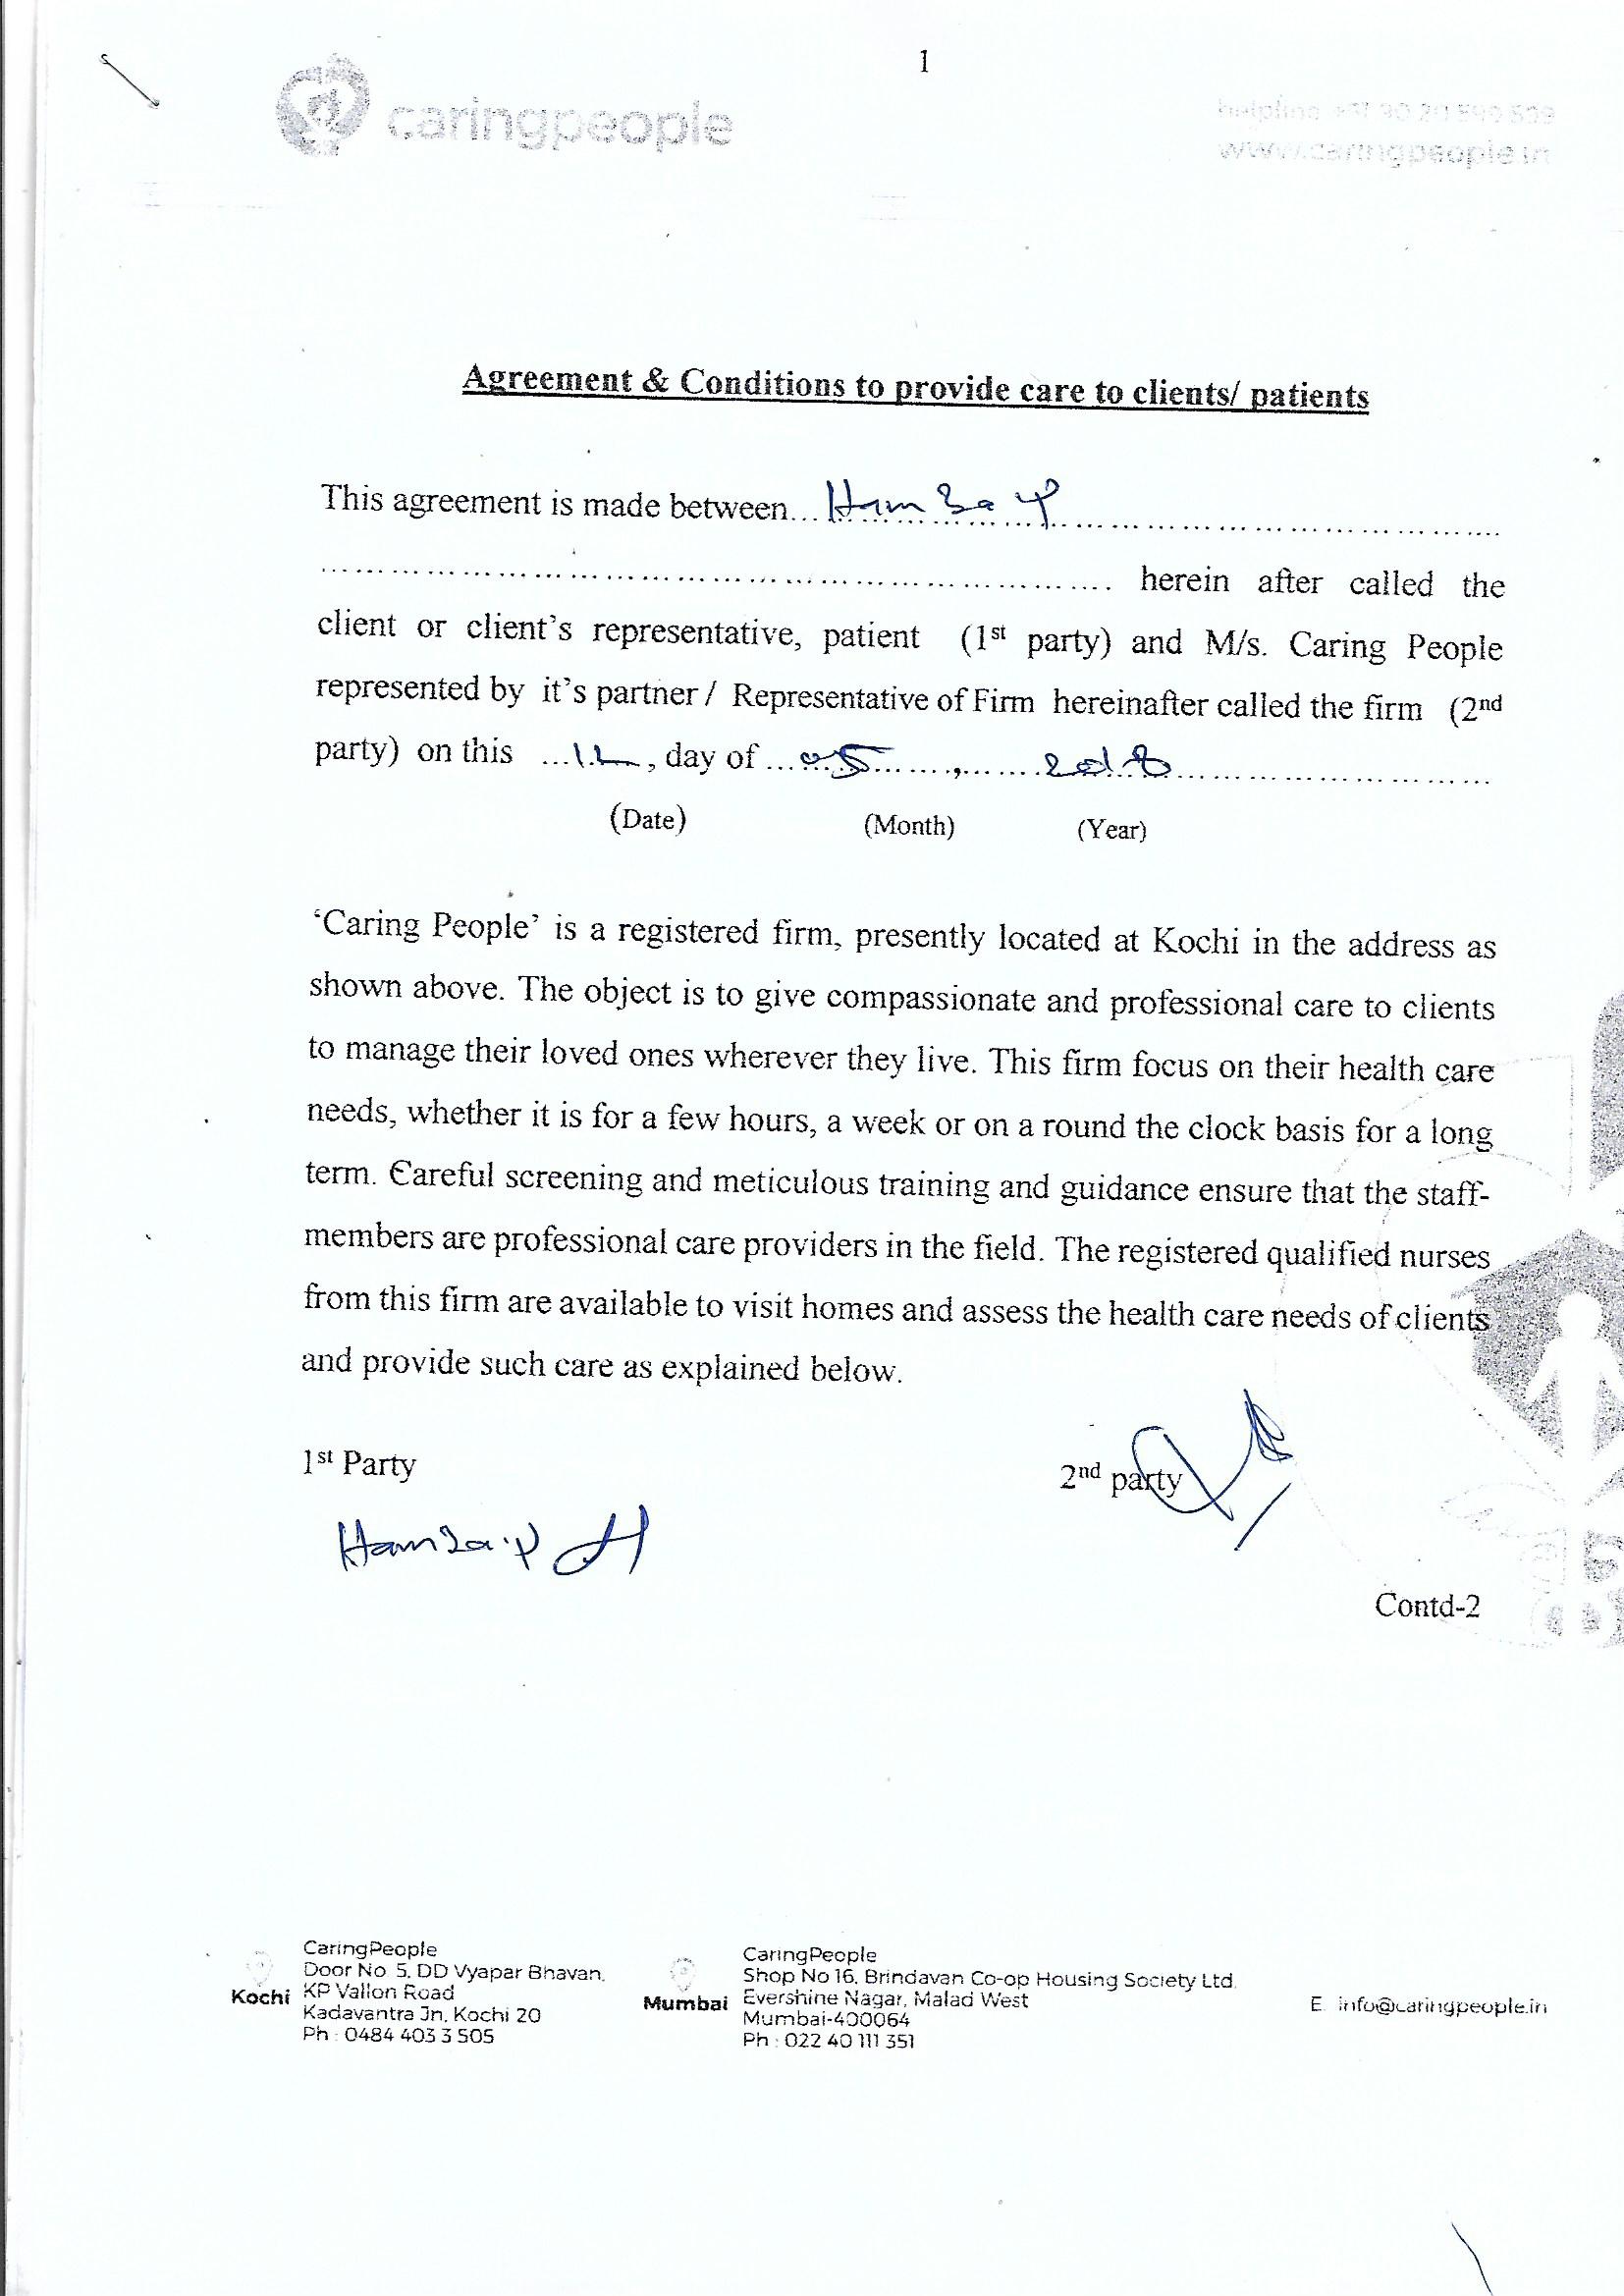 1
caringpeople
helpline +91
www.caringpeople.in
Agreement & Conditions to provide care to clients/ patients
This agreement is made between...Hamza P..............................
........................................................................ herein after called the
client or client's representative, patient (1st party) and M/s. Caring People
represented by it's partner / Representative of Firm hereinafter called the firm (2nd
party) on this ...12..., day of ...05......,......2018..............................
(Date) (Month) (Year)
‘Caring People’ is a registered firm, presently located at Kochi in the address as
shown above. The object is to give compassionate and professional care to clients
to manage their loved ones wherever they live. This firm focus on their health care
needs, whether it is for a few hours, a week or on a round the clock basis for a long
term. Careful screening and meticulous training and guidance ensure that the staff-
members are professional care providers in the field. The registered qualified nurses
from this firm are available to visit homes and assess the health care needs of clients
and provide such care as explained below.
1st Party 2nd party
Hamza.P
Contd-2
Kochi
CaringPeople
Door No 5, DD Vyapar Bhavan,
KP Vallon Road
Kadavantra Jn, Kochi 20
Ph : 0484 403 3 505
Mumbai
CaringPeople
Shop No 16, Brindavan Co-op Housing Society Ltd.
Evershine Nagar, Malad West
Mumbai-400064
Ph : 022 40 111 351
E info@caringpeople.in